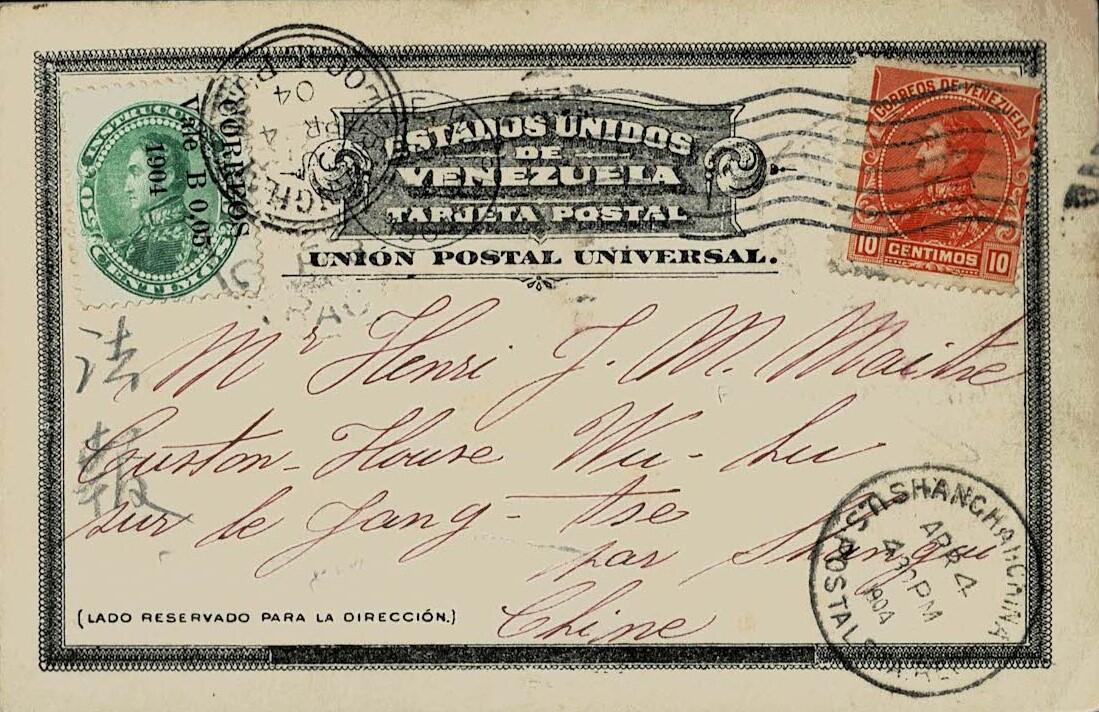 ESTADOS UNIDOS
DE
VENEZUELA
TARJETA POSTAL
UNIÓN POSTAL UNIVERSAL.
CORREOS DE VENEZUELA
10 CENTIMOS 10
INSTRUCCION
CORREOS
Vale B 0,05
1904
法
報
Mr Henri J. M. Maitre
Custom-House Wu-hu
sur le Yang-tse
par Shangai
Chine
(LADO RESERVADO PARA LA DIRECCIÓN.)
SHANGHAI CHINA
APR 4
4 30 PM
1904
U.S. POSTAL